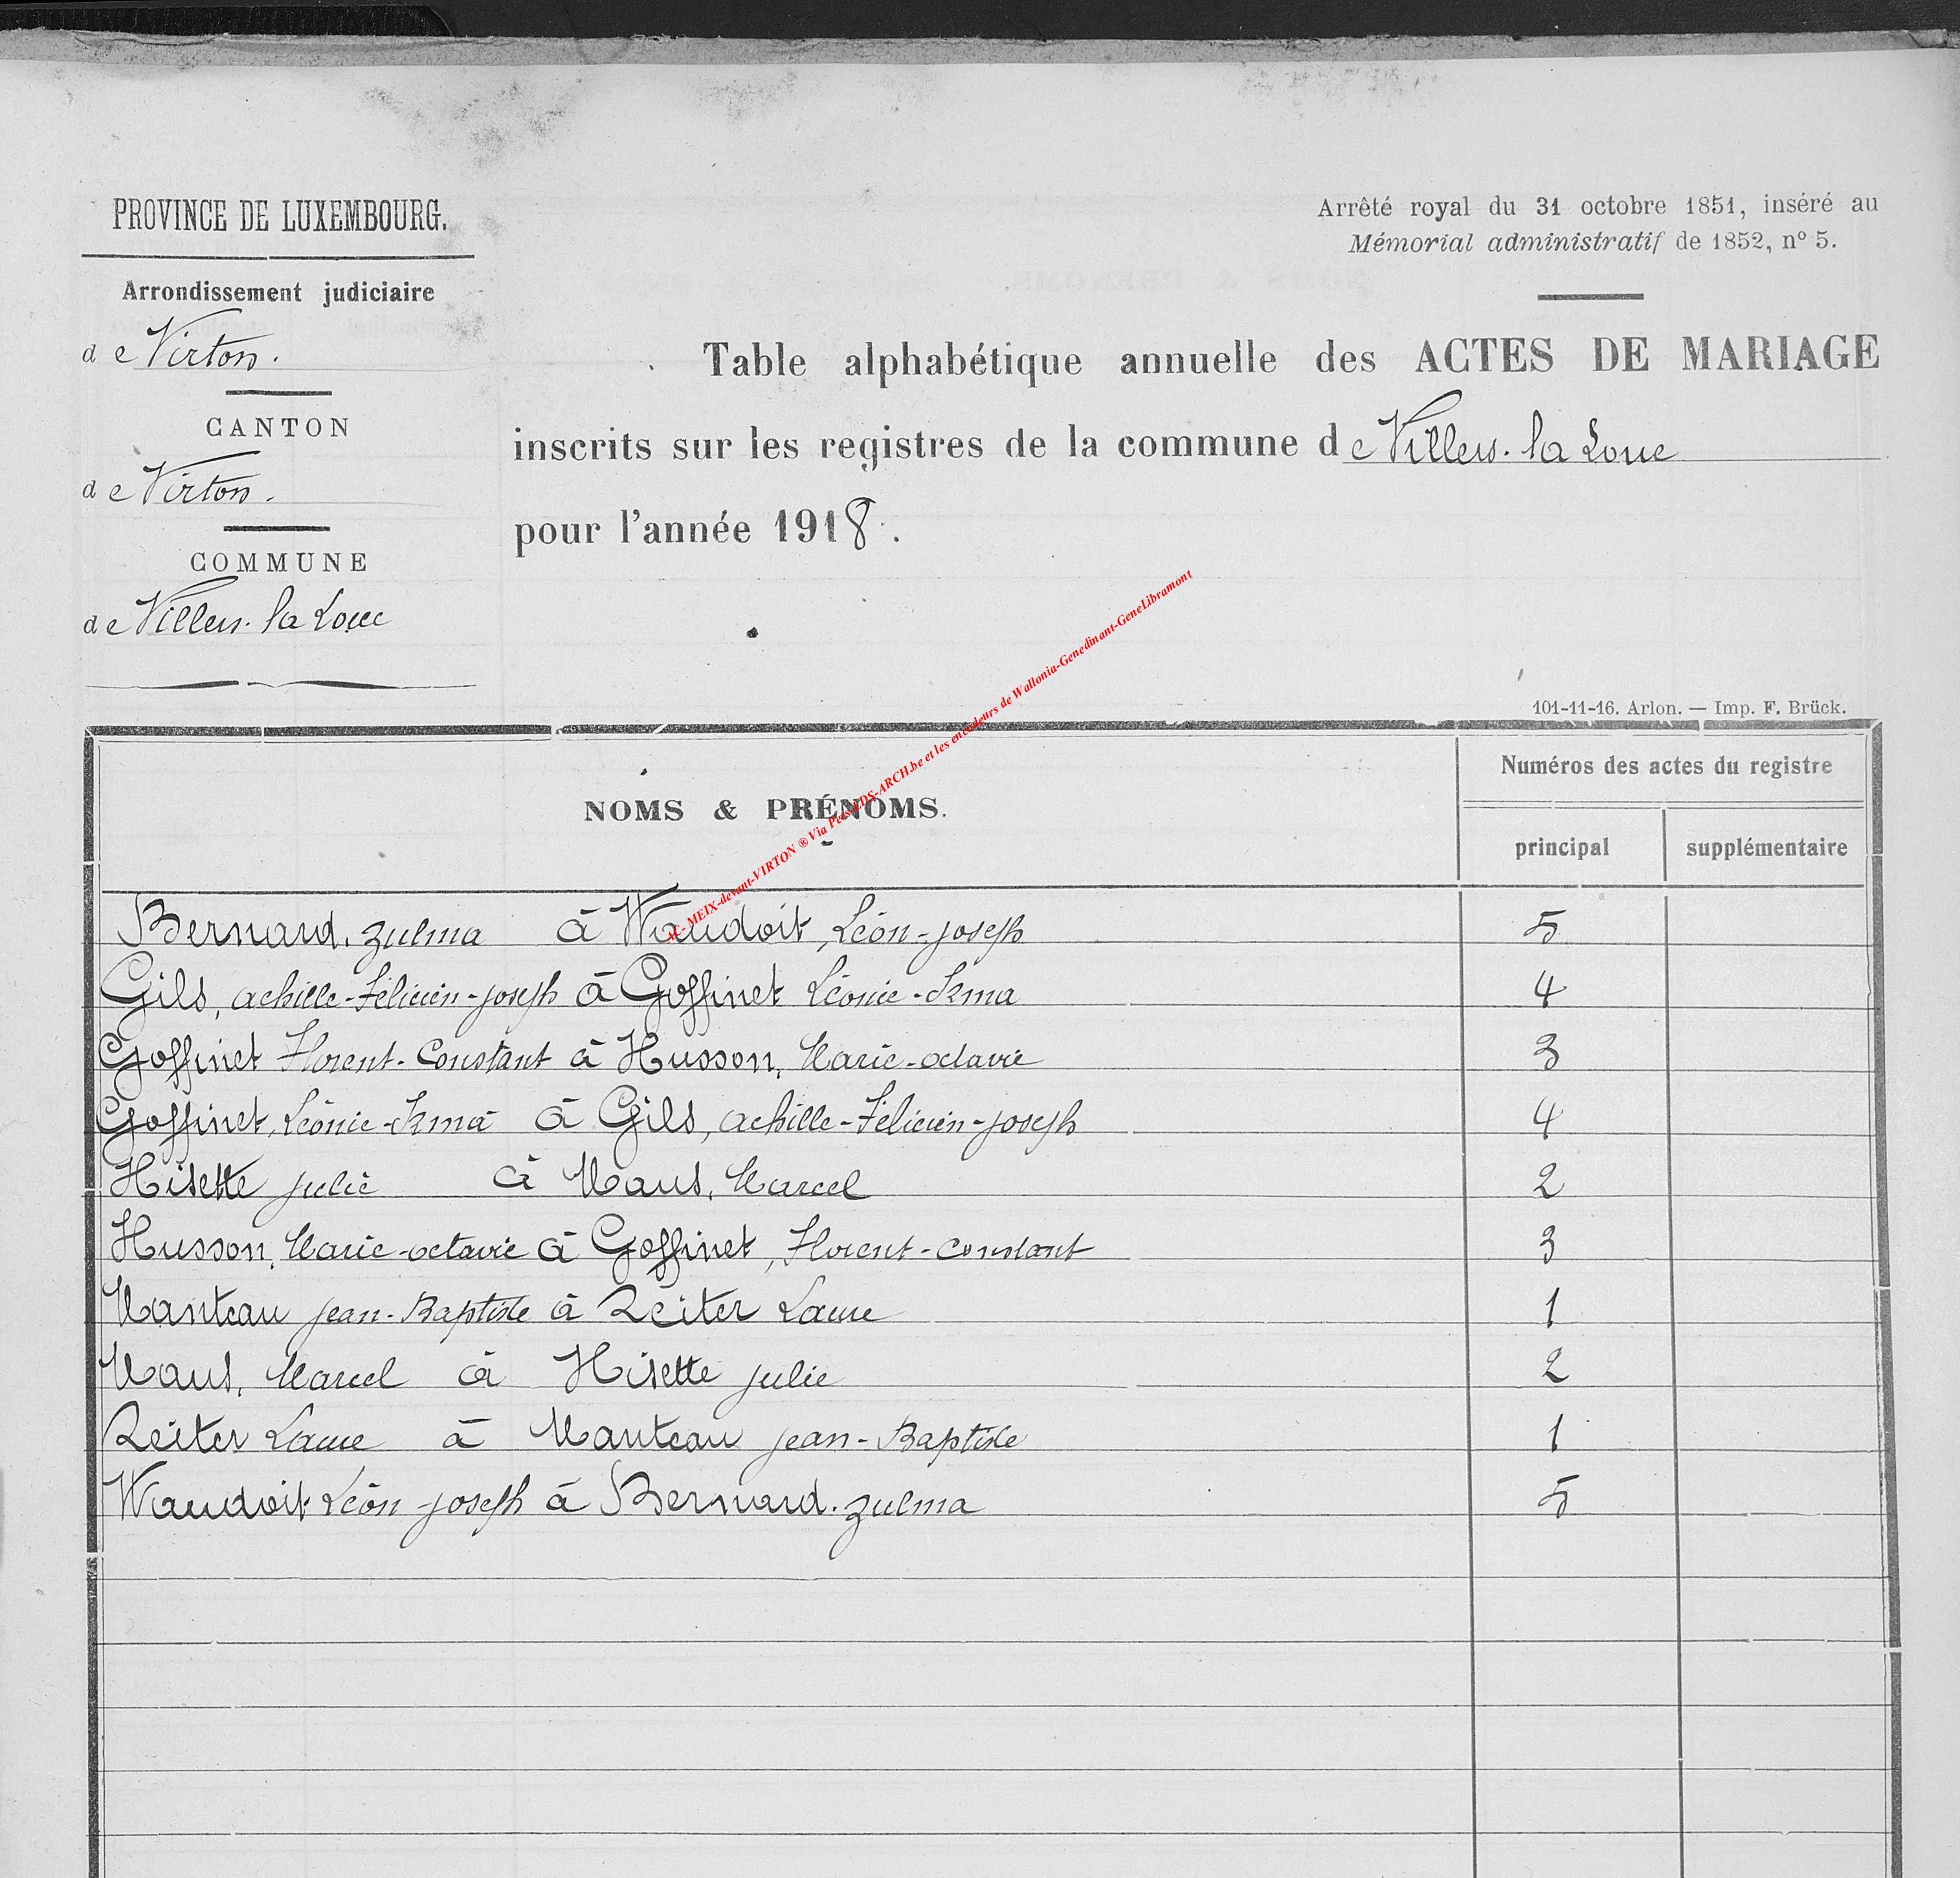 PROVINCE DE LUXEMBOURG.
Arrondissement judiciaire
de Virton.
CANTON
de Virton.
COMMUNE
de Villers-la-Loue
Arrêté royal du 31 octobre 1851, inséré au
Mémorial administratif de 1852, nº 5.
Table alphabétique annuelle des ACTES DE MARIAGE
inscrits sur les registres de la commune de Villers-la Loue
pour l'année 1918.
101-11-16. Arlon. — Imp. F. Brück.
NOMS & PRÉNOMS.
Numéros des actes du registre
principal supplémentaire
MEIX-devant-VIRTON ® Via Pers LDS-ARCH.be et les encodeurs de Wallonia-Genedinant-GeneLibramont
Bernard, Zulma à Waudoit, Léon-Joseph 5
Gils, Achille-Félicien-Joseph à Goffinet Léonie-Irma 4
Goffinet Florent-Constant à Husson, Marie-Octavie 3
Goffinet, Léonie-Irma à Gils, Achille-Félicien-Joseph 4
Hisette Julie à Maus, Marcel 2
Husson, Marie-Octavie à Goffinet, Florent-Constant 3
Manteau Jean-Baptiste à Reiter Laure 1
Maus, Marcel à Hisette Julie 2
Reiter Laure à Manteau Jean-Baptiste 1
Waudoit Léon-Joseph à Bernard. Zulma 5